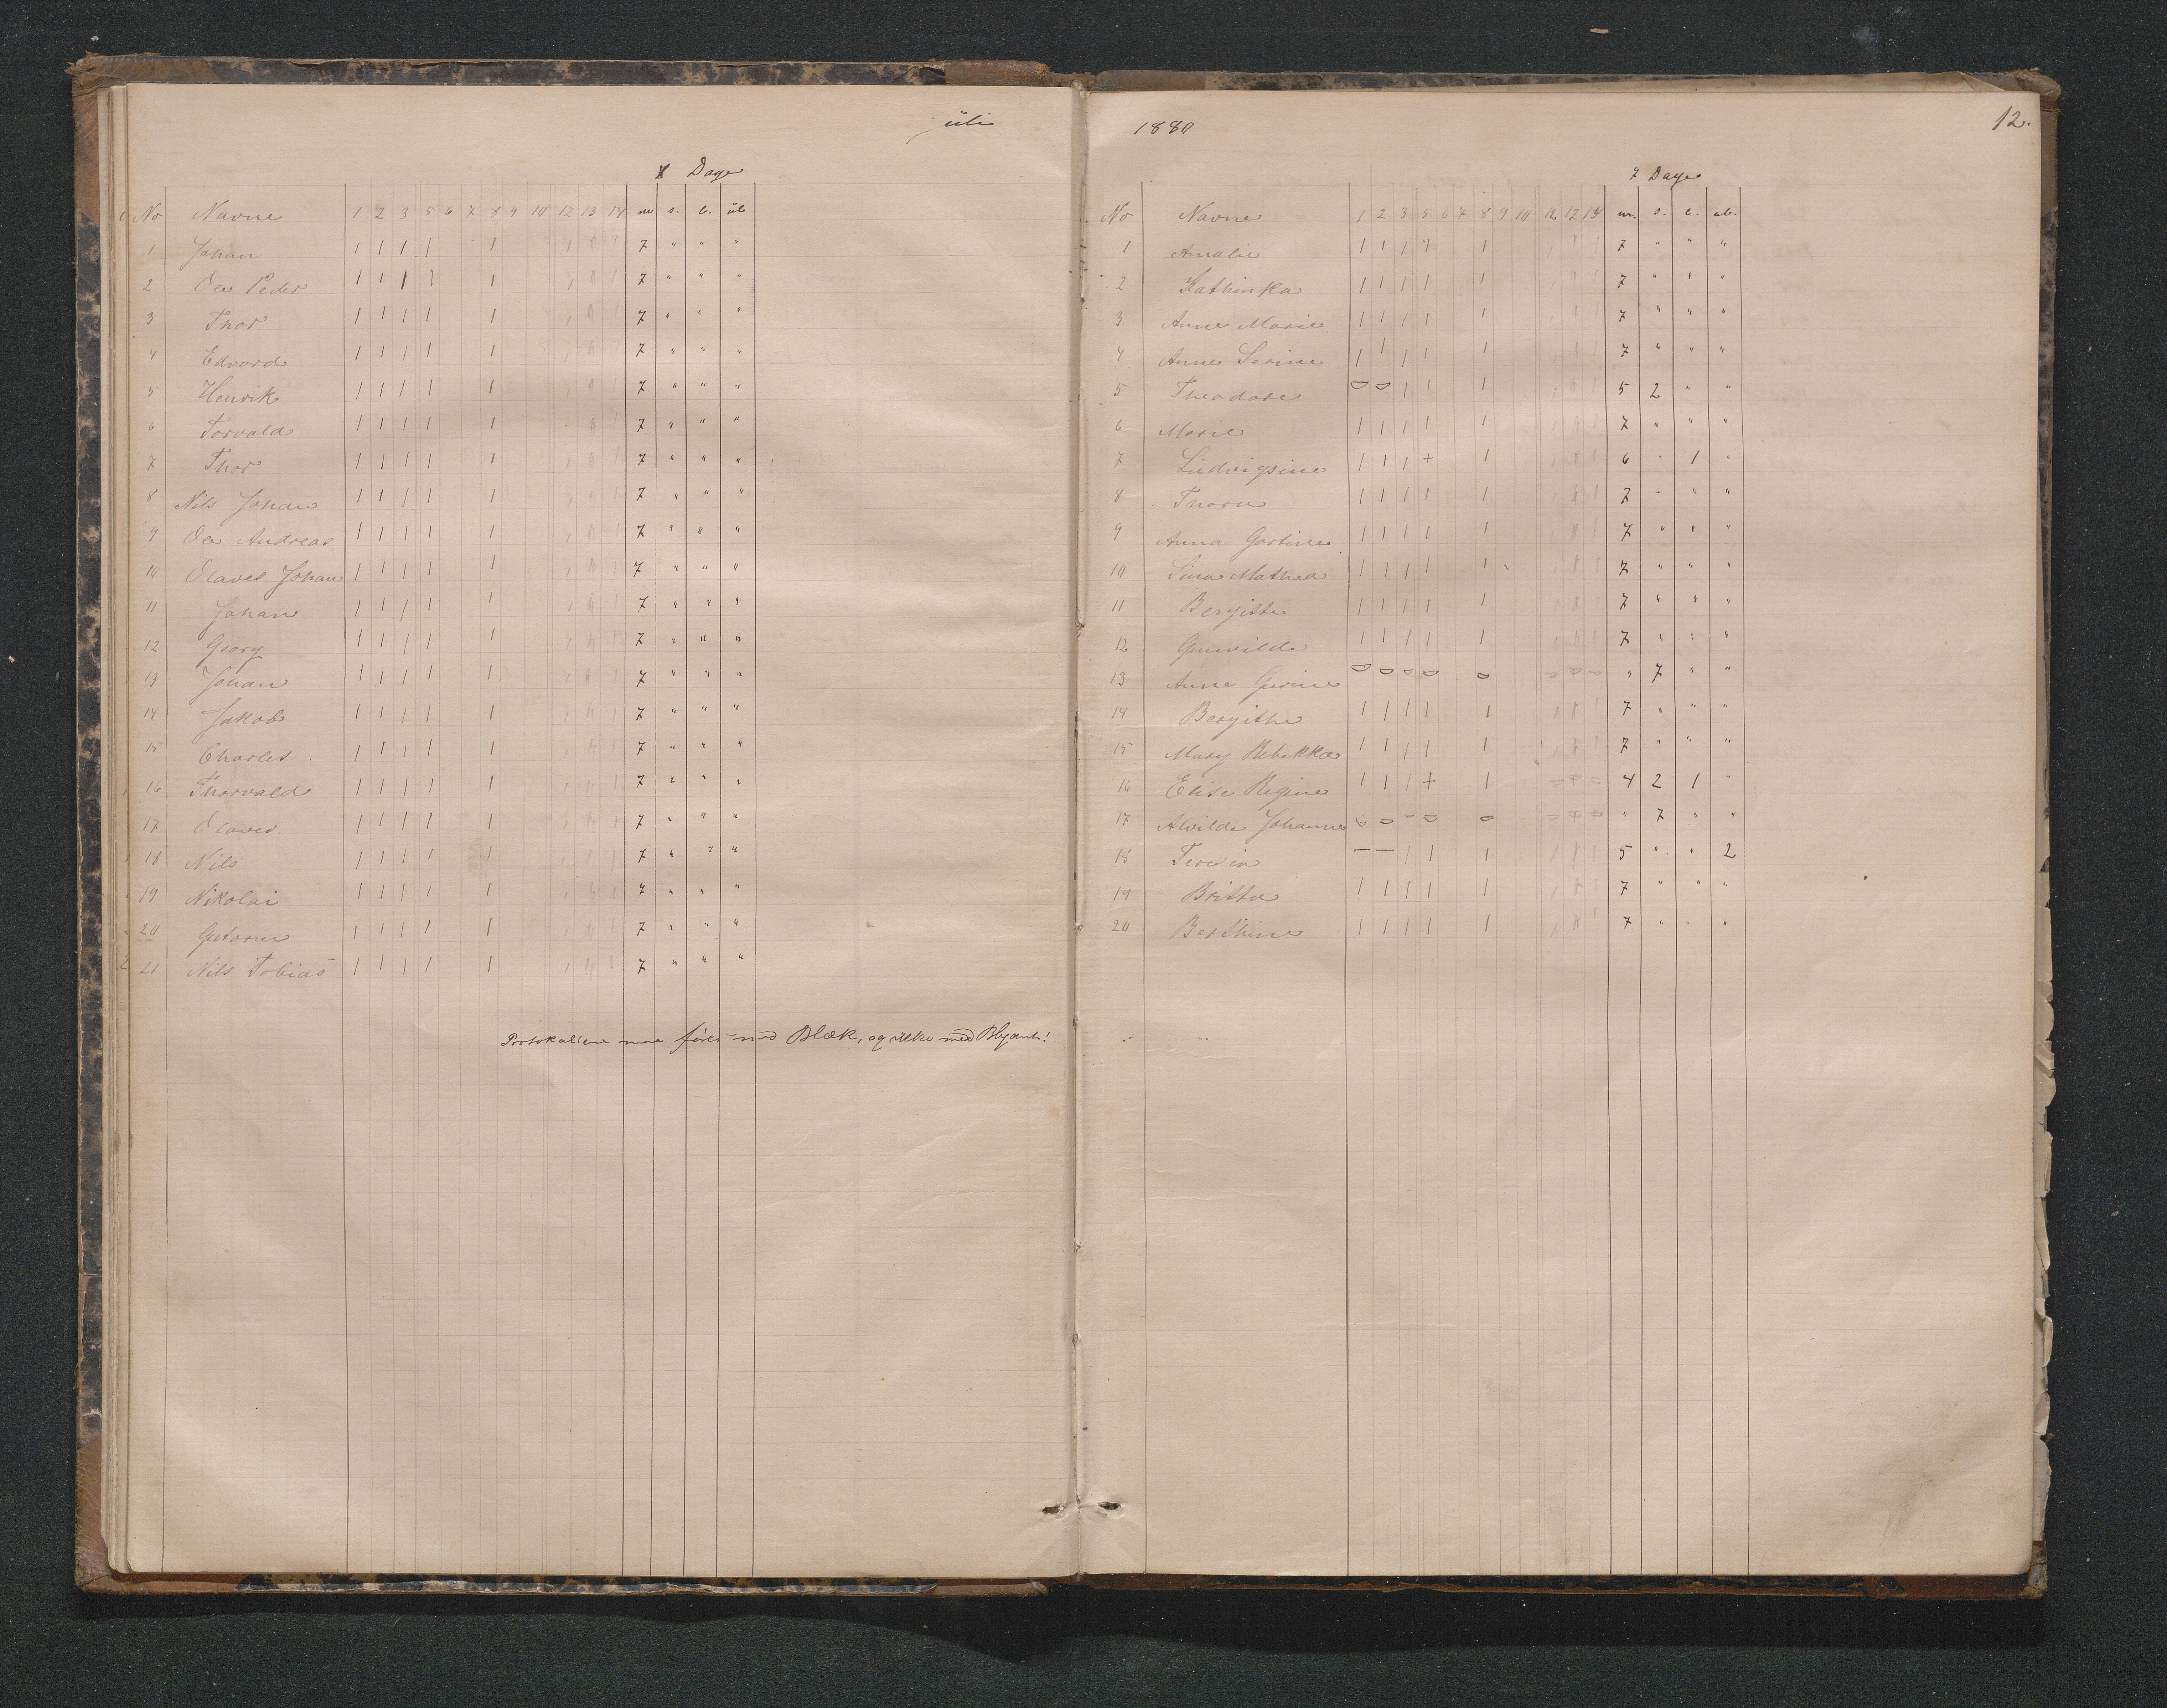 juli
7 Dage
No Navne 1 2 3 5 6 7 8 9 10 12 13 14 m s. l. ul
1 Johan 1 1 1 1 1 1 1 1 7 " " "
2 Ole Peder 1 1 1 1 1 1 1 1 7 " " "
3 Thor 1 1 1 1 1 1 1 1 7 " " "
4 Edvard 1 1 1 1 1 1 1 1 7 " " "
5 Henrik 1 1 1 1 1 1 1 1 7 " " "
6 Torvald 1 1 1 1 1 1 1 7 " " "
7 Thor 1 1 1 1 1 1 1 1 7 " " "
8 Nils Johan 1 1 1 1 1 1 1 1 7 " " "
9 Ole Andreas 1 1 1 1 1 1 1 1 7 " " "
10 Olaves Johan 1 1 1 1 1 1 1 1 7 " " "
11 Johan 1 1 1 1 1 1 1 1 7 " " "
12 Georg 1 1 1 1 1 1 1 1 7 " " "
13 Johan 1 1 1 1 1 1 1 1 7 " " "
14 Jakob 1 1 1 1 1 1 1 1 7 " " "
15 Charles 1 1 1 1 1 1 1 1 7 " " "
16 Thorvald 1 1 1 1 1 1 1 1 7 " " "
17 Olaves 1 1 1 1 1 1 1 1 7 " " "
18 Nils 1 1 1 1 1 1 1 1 7 " " "
19 Nikolai 1 1 1 1 1 1 1 1 7 " " "
20 Gutorm 1 1 1 1 1 1 1 1 7 " " "
21 Nils Tobias 1 1 1 1 1 1 1 1 7 " " "
Protokollene maa føres med Blæk, og ikke med Blyant!
1880
12.
7 Dage
No Navne 1 2 3 5 6 7 8 9 10 12 13 m. s. l. ul.
1 Amalie 1 1 1 1 1 1 1 1 7 " " "
2 Kathinka 1 1 1 1 1 1 1 7 " " "
3 Anne Marie 1 1 1 1 1 1 1 1 7 " " "
4 Anne Serine 1 1 1 1 1 1 1 1 7 " " "
5 Theodore 0 0 1 1 1 1 1 5 2 " "
6 Marie 1 1 1 1 1 1 1 1 7 " " "
7 Ludvigsine 1 1 1 + 1 1 1 1 6 " 1 "
8 Thora 1 1 1 1 1 1 1 1 7 " " "
9 Anna Gostine 1 1 1 1 1 1 1 1 7 " " "
10 Sina Mathea 1 1 1 1 1 1 1 1 7 " " "
11 Bergitte 1 1 1 1 1 1 1 1 7 " " "
12 Gunvilde 1 1 1 1 1 1 1 1 7 " " "
13 Anne Gurine 0 0 0 0 0 0 0 0 " 7 " "
14 Bergithe 1 1 1 1 1 1 1 1 7 " " "
15 Mary Rebekka 1 1 1 1 1 1 1 1 7 " " "
16 Elise Regine 1 1 1 + 1 0 0 0 4 2 1 "
17 Alvilde Johanne 0 0 0 0 0 0 0 0 " 7 " "
18 Teresia – – 1 1 1 1 1 1 5 " " 2
19 Britha 1 1 1 1 1 1 1 1 7 " " "
20 Berthine 1 1 1 1 1 1 1 1 7 " " "